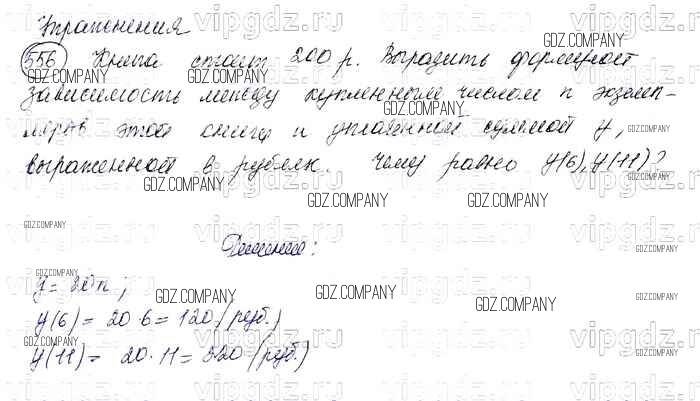 Упражнения
556 Книга стоит 200 р. Выразить формулой
зависимость между купленным числом n экземп-
ляров этой книги и уплаченной суммой y,
выраженной в рублях. Чему равно y(6), y(11)?
Решение:
y = 20n;
y(6) = 20·6 = 120 (руб.)
y(11) = 20·11 = 220 (руб.)